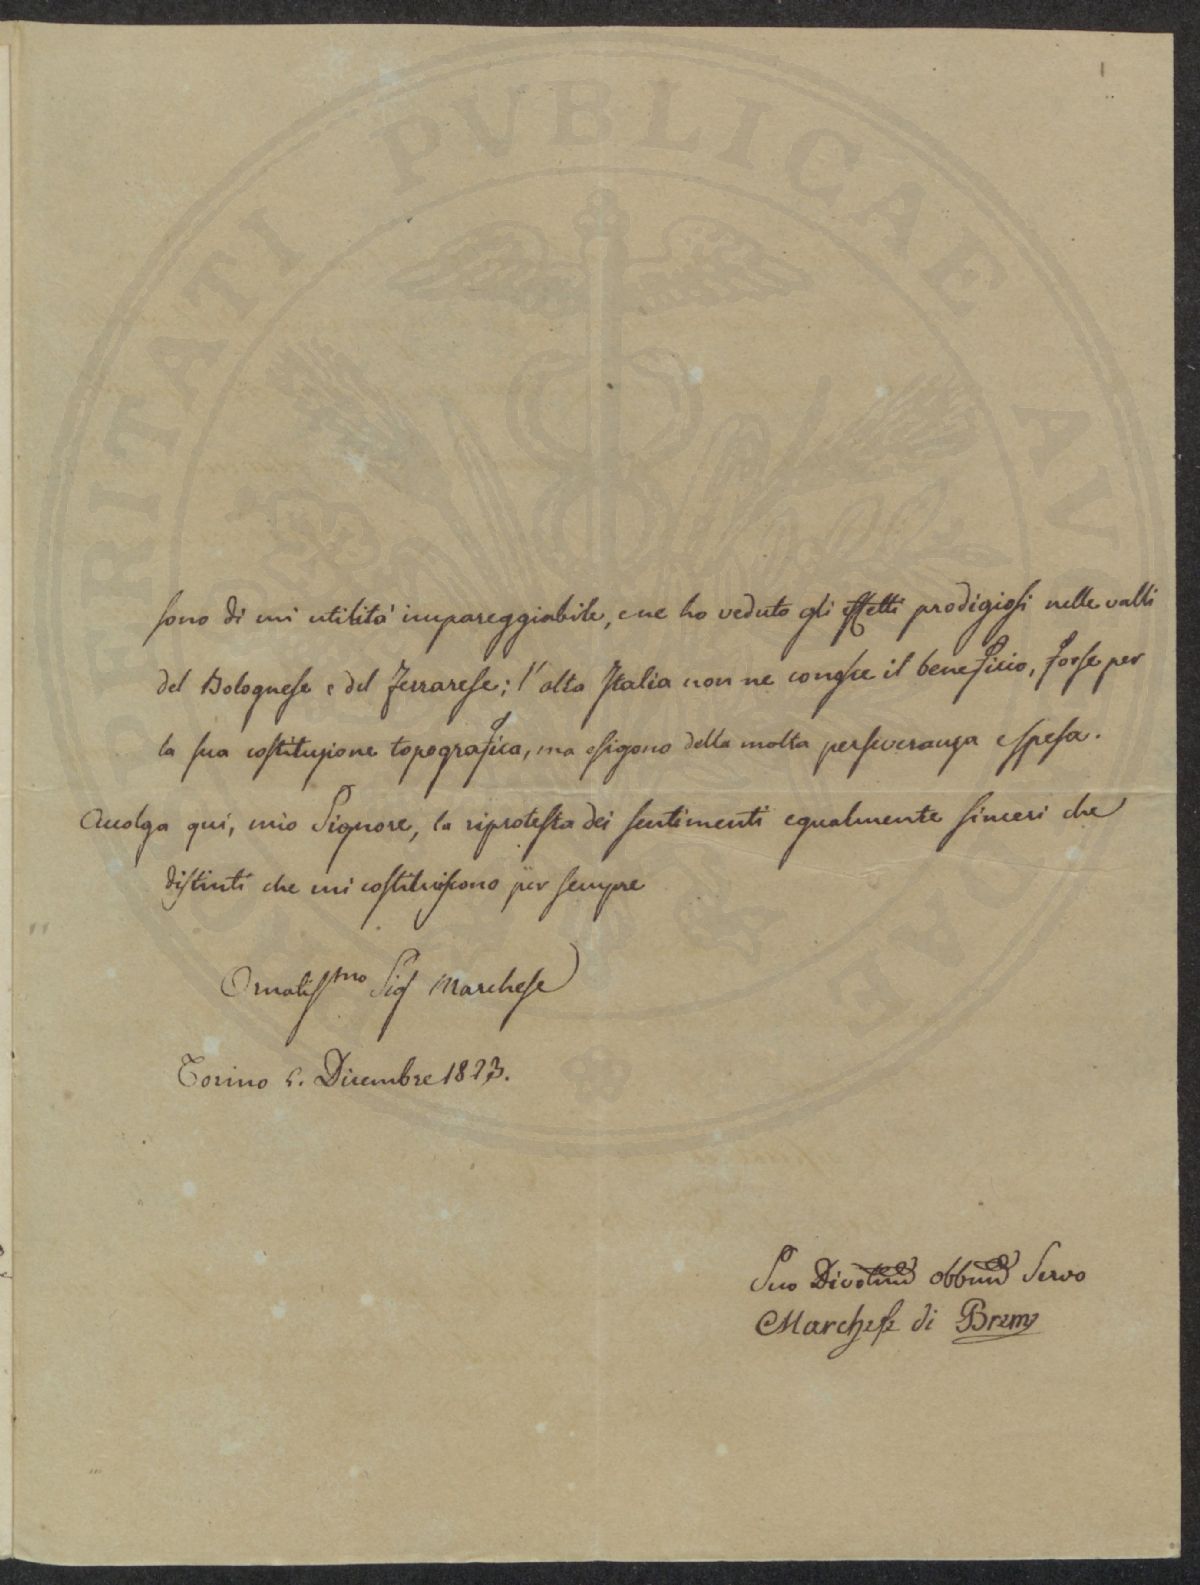 PVBLICAE
sono di un utilità impareggiabile, e ne ho veduto gli effetti prodigiosi nelle valli
del Bolognese e del Ferrarese; l'alta Italia non ne conosce il beneficio, forse per
la sua costituzione topografica, ma esigono della molta perseveranza e spesa.
Accolga qui, mio Signore, la riprotesta dei sentimenti egualmente sinceri che
distinti che mi costituiscono per sempre
Ornatissmo Sig Marchese
Torino 5. Dicembre 1823.
Suo Divotmo obbmo Servo
Marchese di Breme